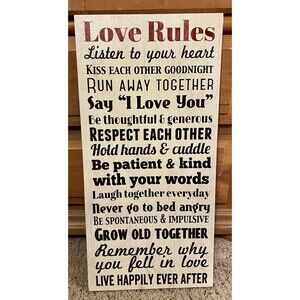 Love Rules
Listen to your heart
KISS EACH OTHER GOODNIGHT
RUN AWAY TOGETHER
Say "I Love You"
Be thoughtful & generous
RESPECT EACH OTHER
Hold hands & cuddle
Be patient & kind
with your words
Laugh together everyday
Never go to bed angry
BE SPONTANEOUS & IMPULSIVE
GROW OLD TOGETHER
Remember why
you fell in love
LIVE HAPPILY EVER AFTER